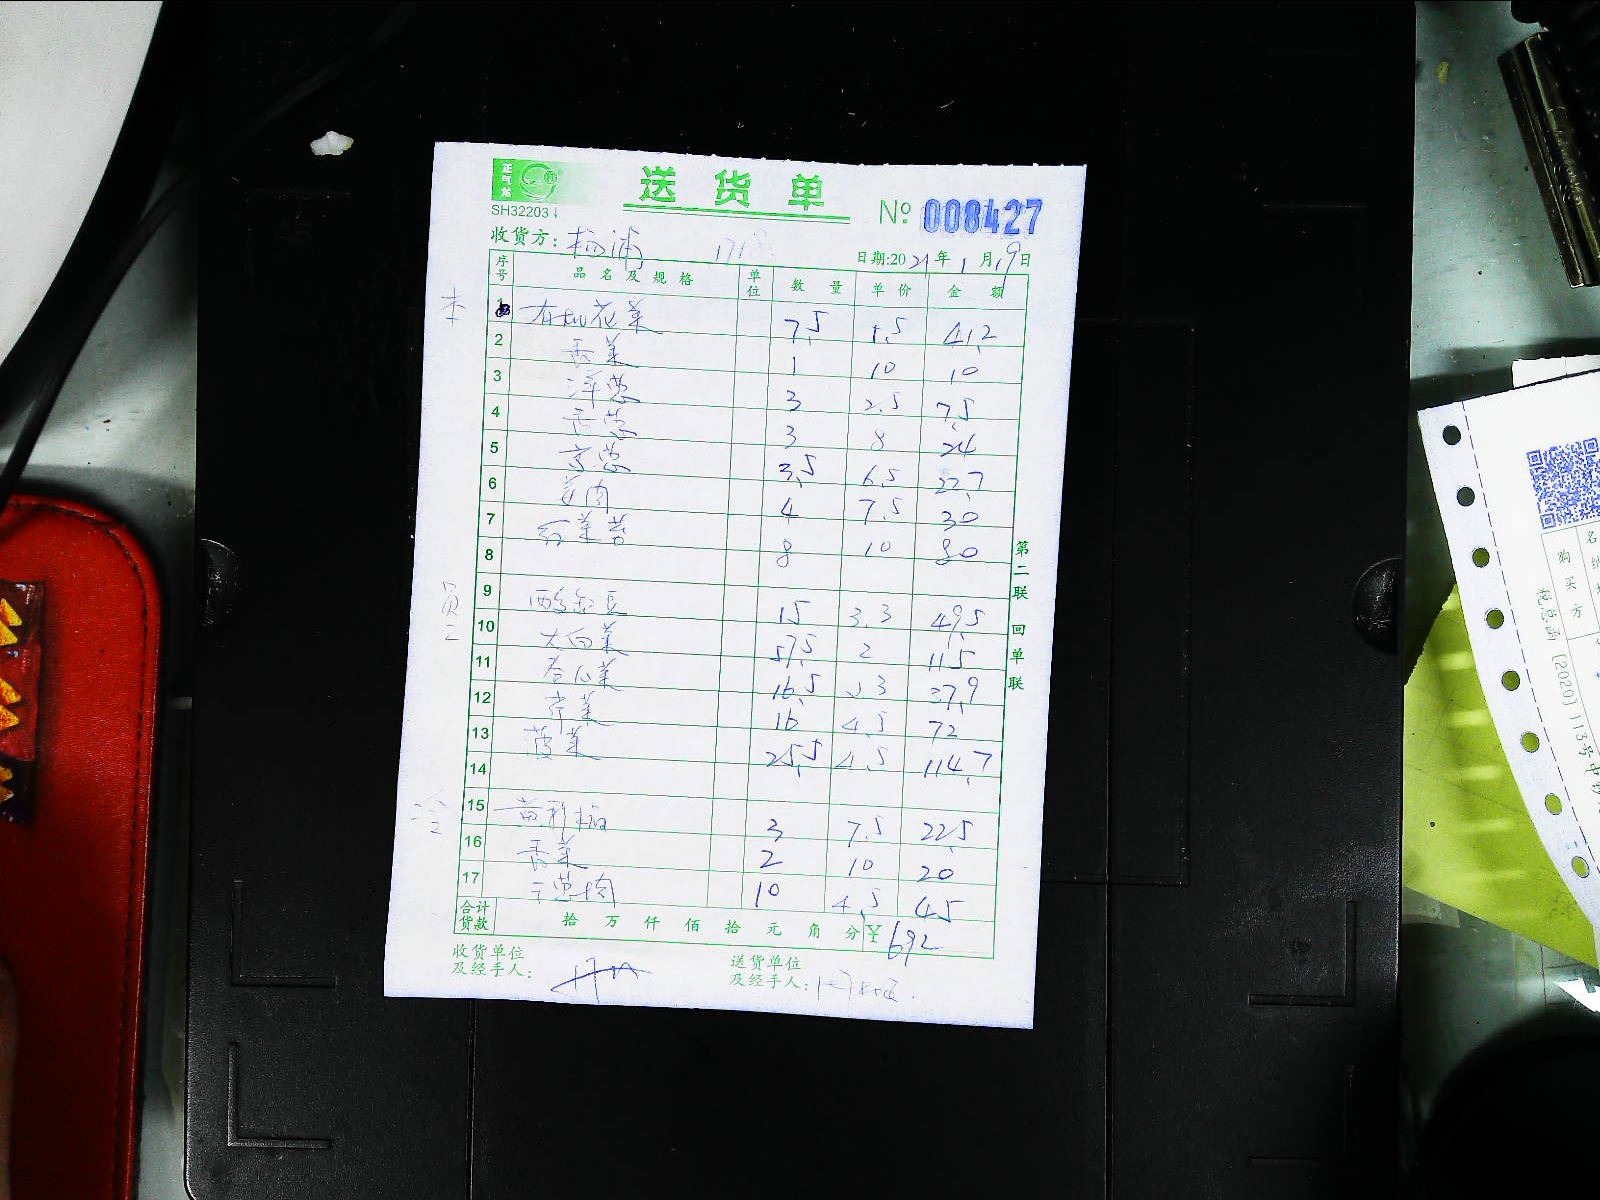 正气龙
送货单
SH32203
№ 008427
收货方: 杨浦
日期:2021年1月19日
序号 品名及规格 单位 数量 单价 金额
本
1 有机花菜 7.5 5.5 41.2
2 香菜 1 10 10
3 洋葱 3 2.5 7.5
4 香葱 3 8 24
5 京葱 3.5 6.5 22.7
6 姜肉 4 7.5 30
7 红美苔 8 10 80
8
员工
9 酸豇豆 15 3.3 49.5
10 大白菜 57.5 2 115
11 卷心菜 16.5 2.3 37.9
12 芹菜 16 4.5 72
13 菠菜 25.5 4.5 114.7
14
冷
15 黄彩椒 3 7.5 22.5
16 香菜 2 10 20
17 干葱肉 10 4.5 45
合计货款 拾 万 仟 佰 拾 元 角 分 ¥ 692
收货单位及经手人:
送货单位及经手人:
第二联 回单联
购买方
税总函[2020]113号中